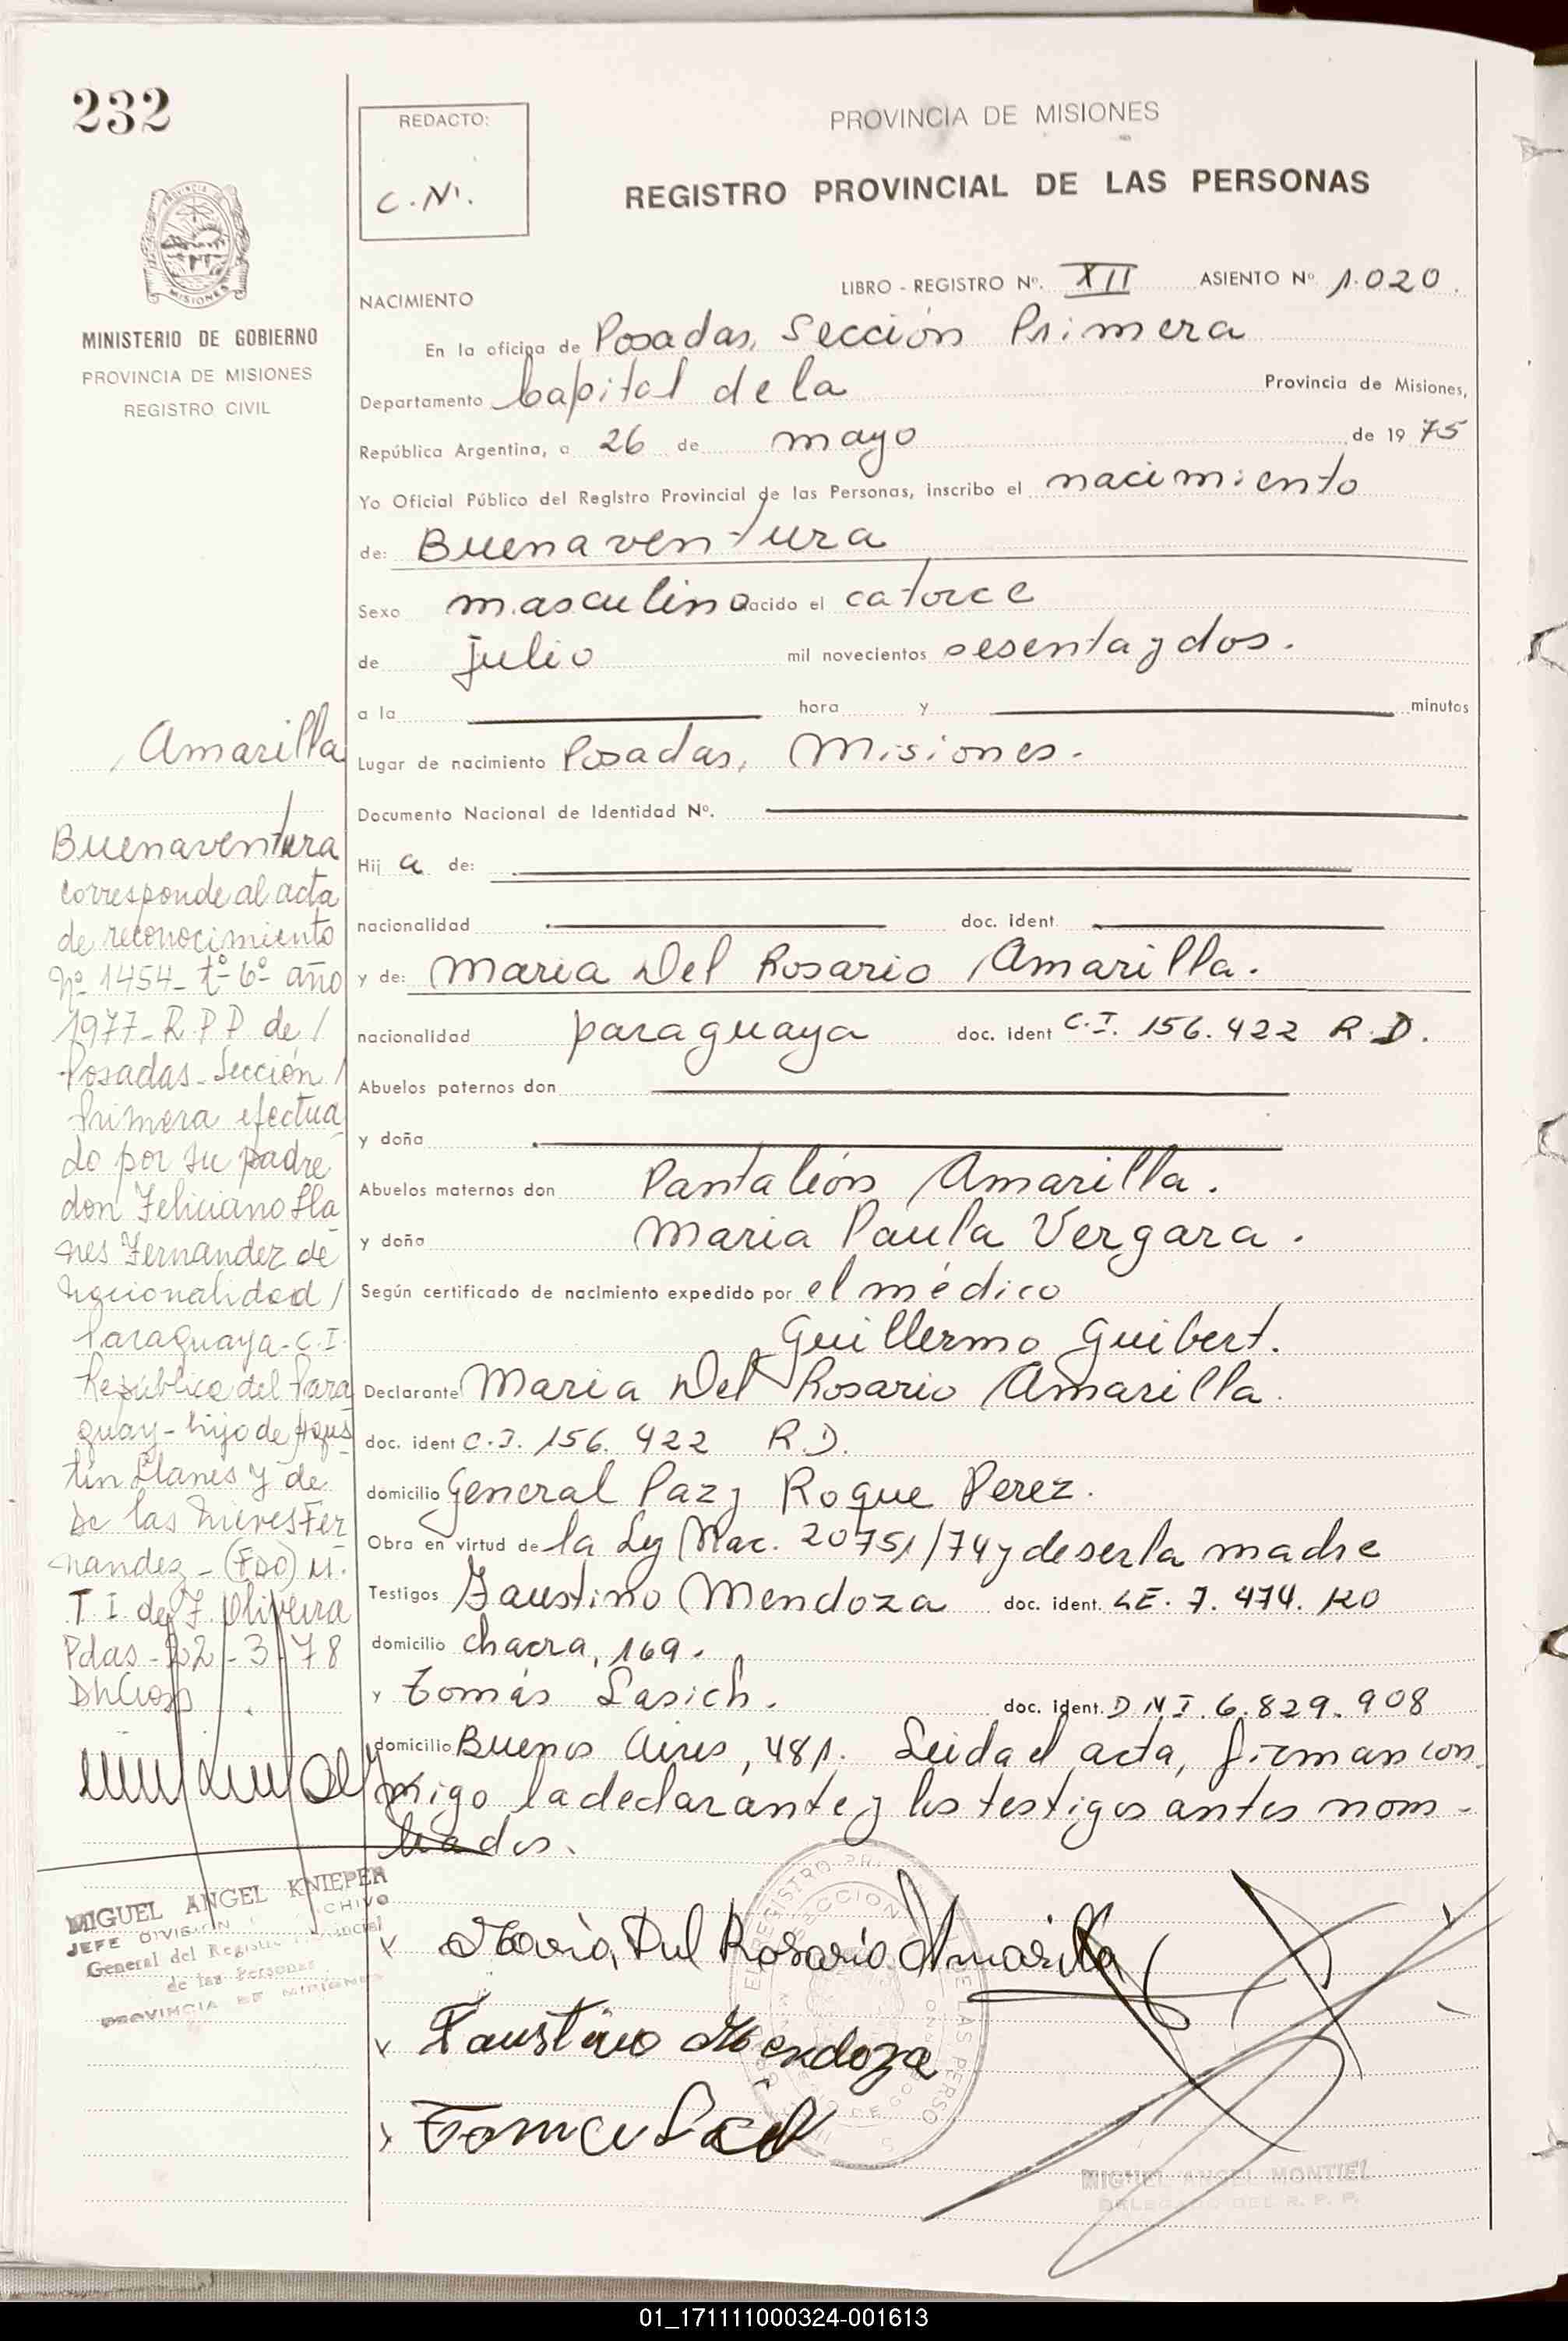 232
MINISTERIO DE GOBIERNO
PROVINCIA DE MISIONES
REGISTRO CIVIL
REDACTO:
C.N.
PROVINCIA DE MISIONES
REGISTRO PROVINCIAL DE LAS PERSONAS
LIBRO - REGISTRO Nº. XII ASIENTO Nº 1.020.
NACIMIENTO
En la oficina de Posadas, Sección Primera
Departamento Capital de la Provincia de Misiones,
República Argentina, a 26 de mayo de 1975
Yo Oficial Público del Registro Provincial de las Personas, inscribo el nacimiento
de: Buenaventura
Sexo masculino nacido el catorce
de julio mil novecientos sesenta y dos.
a la hora y minutos
Lugar de nacimiento Posadas, Misiones.
Documento Nacional de Identidad Nº.
Hij a de:
nacionalidad doc. ident.
y de: Maria Del Rosario Amarilla.
nacionalidad paraguaya doc. ident C.I. 156.422 R.D.
Abuelos paternos don
y doña
Abuelos maternos don Pantaleón Amarilla.
y doña Maria Paula Vergara.
Según certificado de nacimiento expedido por el médico
Guillermo Guibert.
Declarante Maria Del Rosario Amarilla.
doc. ident C.I. 156.422 R.D.
domicilio General Paz y Roque Perez.
Obra en virtud de la Ley Nac. 20751/74 y de ser la madre
Testigos Faustino Mendoza doc. ident. LE. 7.474.120
domicilio chacra, 169.
y Tomás Lasich. doc. ident. D N I. 6.829.908
domicilio Buenos Aires, 481. Leida el acta, firman con
migo la declarante y los testigos antes nom-
brados.
Maria Del Rosario Amarilla
Faustino Mendoza
MIGUEL ANGEL MONTIEL
DELEGADO DEL R. P. P.
Amarilla
Buenaventura
corresponde al acta
de reconocimiento
Nº 1454 - tº 6º año
1977 - R.P.P de /
Posadas - Sección /
Primera efectua
do por su padre
don Feliciano Lla
nes Fernandez de
nacionalidad /
Paraguaya - C.I.
República del Para
guay - hijo de Agus
tin Llanes y de
De las Nieves Fer
nandez - (FDO) M.
T I de F. Oliveira
Pdas - 22 - 3 - 78
MIGUEL ANGEL KNIEPER
JEFE DIVISION ARCHIVO
General del Registro Provincial
de las Personas
PROVINCIA DE MISIONES
01_171111000324-001613